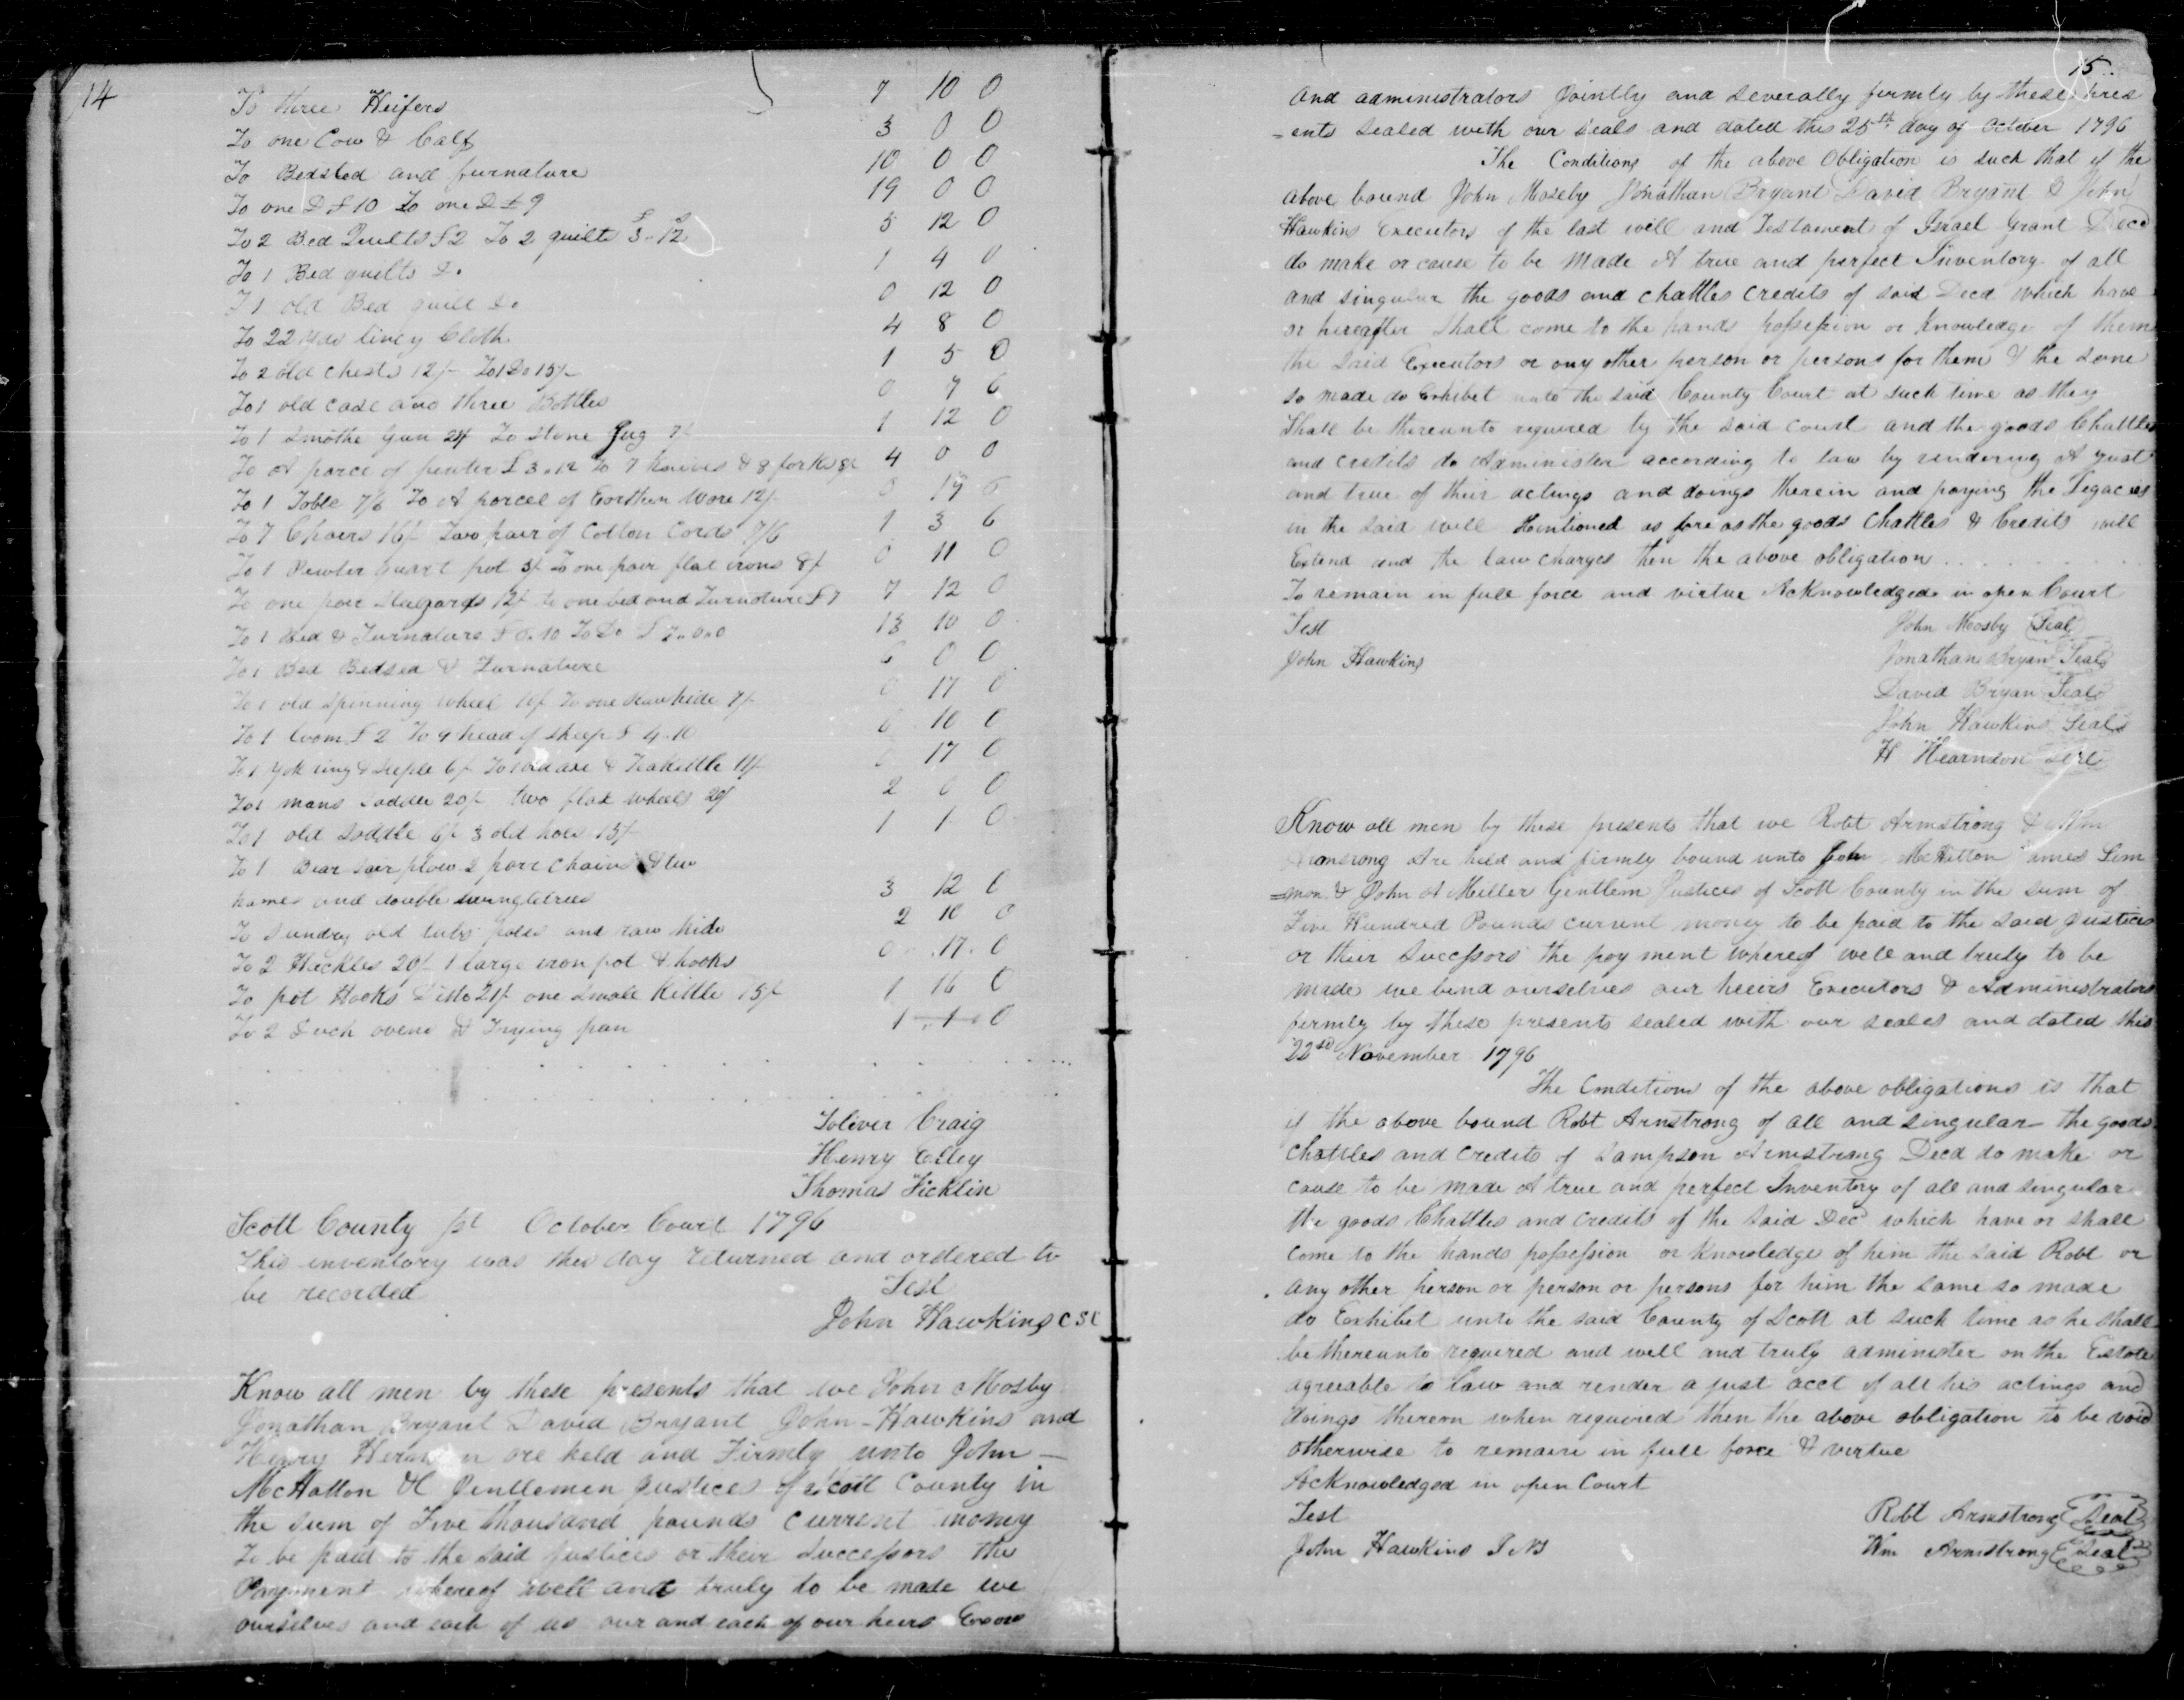 14
To three Heifers 7 10 0
To one Cow & Calf 3 0 0
To Bedsted and furnature 10 0 0
To one D £10 To one D £9 19 0 0
To 2 Bed Quilts £2 To 2 quilts £3.12 5 12 0
To 1 Bed quilts Do 1 4 0
To 1 old Bed quilt Do 0 12 0
To 22 yds lincy Cloth 4 8 0
To 2 old chests 12/- To 1 Do 13/- 1 5 0
To 1 old case and three Bottles 0 7 6
To 1 Smothe Gun 24/ To Stone Jug 1 12 0
To A parce of pewter £3.12 To 7 knives & 8 forks 8/ 4 0 0
To 1 Table 7/6 To A parcel of Earthen Ware 12/- 0 19 6
To 7 Chaers 16/- Two pair of Cotton Cords 7/6 1 3 6
To 1 Pewter quart pot 3/ To one pair flat irons 8/ 0 11 0
To one pair Stelgards 12/- to one bed and Furnature £7 7 12 0
To 1 Bed & Furnature £6.10 To Do £7.0.0 13 10 0
To 1 Bed Bedsed & Furnature 6 0 0
To 1 old Spinning Wheel 10/ To one Rawhide 7/- 0 17 0
To 1 loom £2 To 9 head of sheep £4.10 6 10 0
To 1 yok ring & steple 6/ To 1 broad axe & Teakettle 11/ 0 17 0
To 1 mans Saddle 20/- two flax wheels 20/ 2 0 0
To 1 old Saddle 6/- 3 old hoes 15/- 1 1 0
To 1 Bear Sair plow 2 pare chains & two
hames and double swingletrees 3 12 0
To Sundry old tubs poles and raw hide 2 10 0
To 2 Hackles 20/- 1 large iron pot & hooks 0 17 0
To pot Hooks Ditto 21/- one Small Kittle 15/- 1 16 0
To 2 Duch ovens & Frying pan 1 1 0
Toliver Craig
Henry Elley
Thomas Ficklin
Scott County Sct October Court 1796
This inventory was this day returned and ordered to
be recorded Test
John Hawkins C S C
Know all men by these presents that we John Mosby
Jonathan Bryant David Bryant John Hawkins and
Henry are held and Firmly unto John
McHatton &C Gentlemen Justices of Scott County in
the sum of Five thousand pounds current money
To be paid to the Said Justices or their Successors the
Payment whereof well and truly to be made we
ourselves and each of us our and each of our heirs Exors
15
and administrators Jointly and severally firmly by these pres
-ents sealed with our seals and dated this 25th day of October 1796
The Conditions of the above Obligation is such that if the
above bound John Moseby Jonathan Bryant David Bryant & John
Hawkins Executors of the last will and Testament of Israel Grant Decd
do make or cause to be Made A true and perfect Inventory of all
and singular the goods and chattles credits of said Decd which have
or hereafter shall come to the hands possession or Knowledge of them
the Said Executors or any other person or persons for them & the same
so made do Exhibet unto the said County Court at such time as they
Shall be thereunto required by the said court and the goods Chattles
and credits do Administer according to law by rendering A Just
and true of their actings and doings therein and paying the Legacies
in the said will Mentioned as fare as the goods Chattles & Credits will
Extend and the law charges then the above obligation
To remain in full force and virtue Acknowledged in open Court
Test John Moosby Seal
John Hawkins Jonathan Bryan Seal
David Bryan Seal
John Hawkins Seal
H Hearndon Seal
Know all men by these presents that we Robt Armstrong & Wm
Armsrong Are held and firmly bound unto John McHatton James Lem
=mon & John A Miller Gentlem Justices of Scott County in the sum of
Five Hundred Pounds current money to be paid to the Said Justices
or their Successors the pay ment whereof well and truly to be
made we bend ourselves our heirs Executors & Administrators
firmly by these presents sealed with our seales and dated this
22sd November 1796
The Conditions of the above obligations is that
if the above bound Robt Armstrong of all and singular the goods
Chattles and credits of Sampson Armstrong Decd do make or
cause to be made A true and perfect Inventory of all and singular
the goods Chattles and credits of the Said Decd which have or shall
come to the hands possession or Knowledge of him the said Robt or
any other person or person or persons for him the same so made
do Exhibet unto the said County of Scott at such time as he shall
be thereunto required and well and truly administer on the Estate
agreeable to law and render a just acct of all his actings and
doings therern when required then the above obligation to be void
otherwise to remain in full force & virtue
Acknowledged in open Court
Test Robt Armstrong Seal
John Hawkins Wm Armstrong Seal